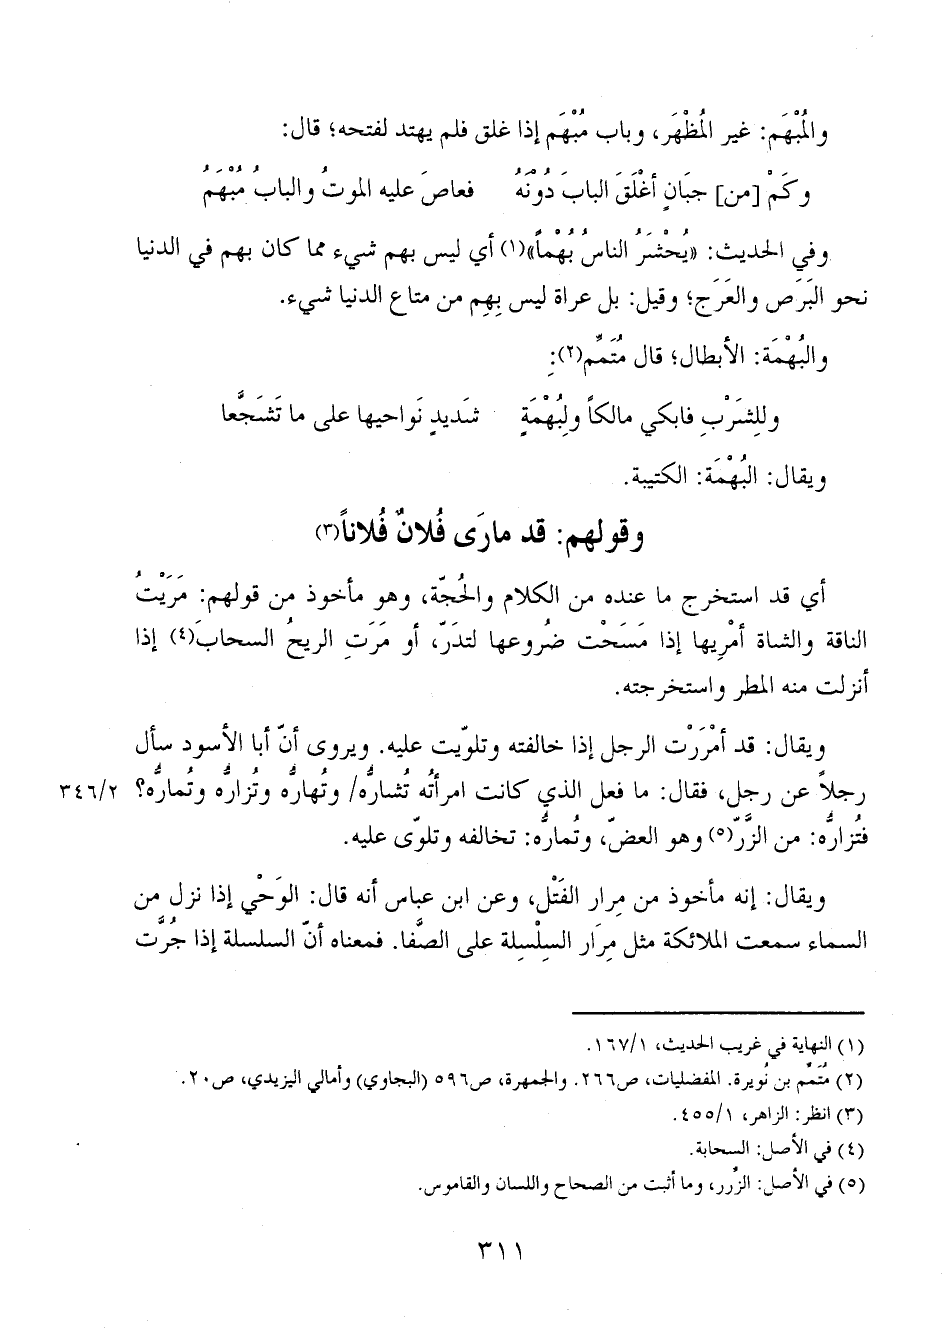 والمُبْهَم: غير المُظْهَر، وباب مُبْهَم إذا غلق فلم يهتد لفتحه؛ قال:
وكَمْ [من] جبَانٍ أغْلَقَ البابَ دُونَهُ فعاصَ عليه الموتُ والبابُ مُبْهَمُ
وفي الحديث: «يُحْشَرُ الناسُ بُهْماً»(١) أي ليس بهم شيء مما كان بهم في الدنيا
نحو البَرَص والعَرَج؛ وقيل: بل عراة ليس بِهِم من متاع الدنيا شيء.
والبُهْمَة: الأبطال؛ قال مُتَمِّم(٢):
وللِشرَْبِ فابكي مالكاً ولِبُهْمَةٍ شديدٍ نَواحيها على ما تَشَجَّعا
ويقال: البُهْمَة: الكتيبة.
وقولهم: قد مارَى فُلانٌ فُلاناً(٣)
أي قد استخرج ما عنده من الكلام والحُجّة، وهو مأخوذ من قولهم: مَرَيْتُ
الناقة والشاة أمْرِيها إذا مَسَحْت ضُروعها لتدَرّ، أو مَرَتِ الريحُ السحابَ(٤) إذا
أنزلت منه المطر واستخرجته.
ويقال: قد أمْرَرْت الرجل إذا خالفته وتلوّيت عليه. ويروى أنّ أبا الأسود سأل
رجلاً عن رجل، فقال: ما فعل الذي كانت امرأتُه تُشارهُّ/ وتُهارهُّ وتُزارهُّ وتُمارهُّ؟ ٣٤٦/٢
فتُزارهُّ: من الزَّرّ(٥) وهو العضّ، وتُمارهُّ: تخالفه وتلوّى عليه.
ويقال: إنه مأخوذ من مِرار الفَتْل، وعن ابن عباس أنه قال: الوَحْي إذا نزل من
السماء سمعت الملائكة مثل مِرَار السِلْسِلة على الصَّفا. فمعناه أنّ السلسلة إذا جُرَّت
(١) النهاية في غريب الحديث، ١٦٧/١.
(٢) مُتَمَّم بن نُويرة. المفضليات، ص٢٦٦. والجمهرة، ص٥٩٦ (البجاوي) وأمالي اليزيدي، ص٢٠.
(٣) انظر: الزاهر، ٤٥٥/١.
(٤) في الأصل: السحابة.
(٥) في الأصل: الزُرر، وما أثبت من الصحاح واللسان والقاموس.
٣١١